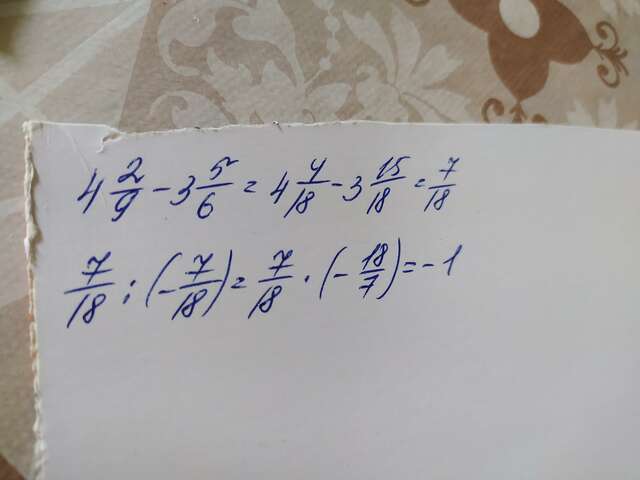 4 2/9 - 3 5/6 = 4 4/18 - 3 15/18 = 7/18
7/18 : (- 7/18) = 7/18 · (- 18/7) = - 1